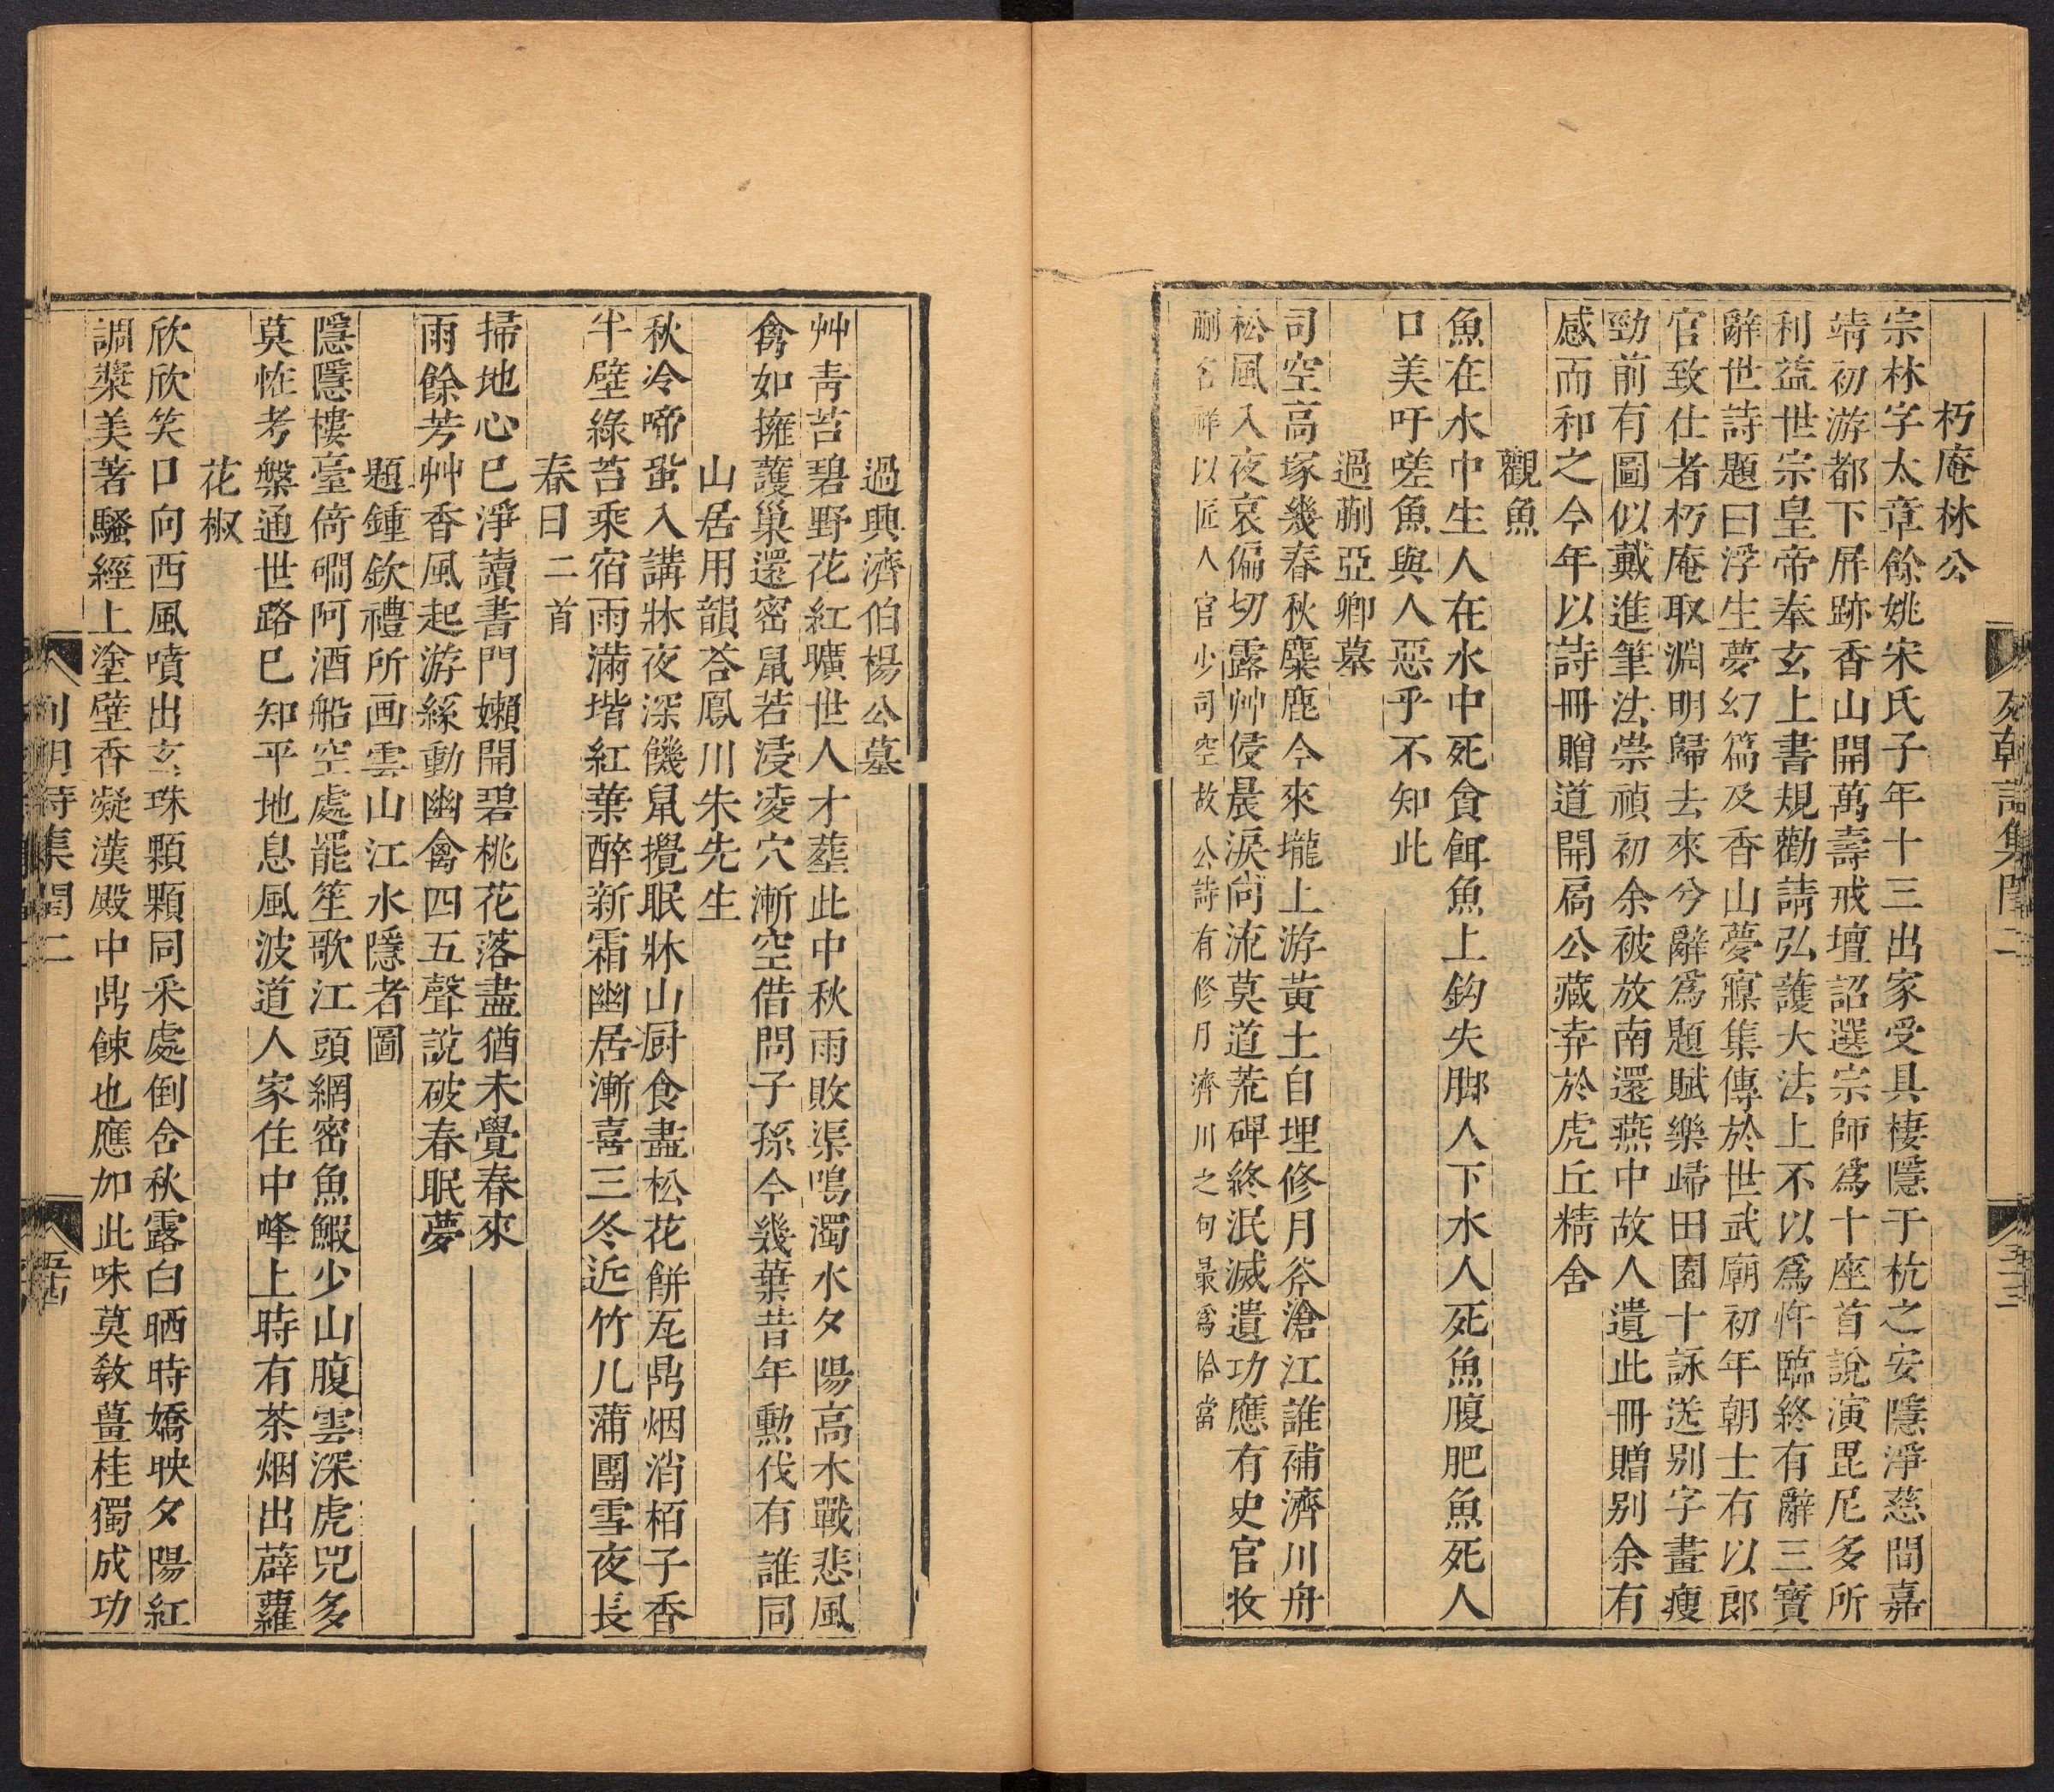 朽庵林公
宗林字太章餘姚宋氏子年十三出家受具棲隱于杭之安隱淨慈間嘉
靖初游都下屏跡香山開萬壽戒壇詔選宗師爲十座首說演毘尼多所
利益世宗皇帝奉玄上書規勸請弘護大法上不以爲忤臨終有辭三寶
辭世詩題曰浮生夢幻篇及香山夢寱集傳於世武廟初年朝士有以郎
官致仕者朽庵取淵明歸去來兮辭爲題賦樂歸田園十詠送別字畫瘦
勁前有圖似戴進筆法崇禎初余被放南還燕中故人遺此冊贈別余有
感而和之今年以詩冊贈道開扃公藏弆於虎丘精舍
觀魚
魚在水中生人在水中死貪餌魚上鈎失脚人下水人死魚腹肥魚死人
口美吁嗟魚與人惡乎不知此
過蒯亞卿墓
司空高塚幾春秋麋鹿今來壠上游黃土自埋修月斧滄江誰補濟川舟
松風入夜哀偏切露艸侵晨淚尙流莫道荒碑終泯滅遺功應有史官收
蒯名祥以匠人官少司空故公詩有修月濟川之句最爲恰當
列朝詩集閏二
五十三
過興濟伯楊公墓
艸青苔碧野花紅曠世人才塟此中秋雨敗渠鳴濁水夕陽高木戰悲風
禽如擁護巢還密鼠若浸凌穴漸空借問子孫今幾葉昔年勳伐有誰同
山居用韻荅鳳川朱先生
秋冷啼蛩入講牀夜深饑鼠攪眠牀山厨食盡松花餅瓦鼎烟消栢子香
半壁綠苔乘宿雨滿堦紅葉醉新霜幽居漸喜三冬近竹几蒲團雪夜長
春日二首
掃地心已淨讀書門嬾開碧桃花落盡猶未覺春來
雨餘芳艸香風起游絲動幽禽四五聲說破春眠夢
題鍾欽禮所画雲山江水隱者圖
隱隱樓臺倚磵阿酒船空處罷笙歌江頭網密魚鰕少山腹雲深虎兕多
莫恠考槃通世路已知平地息風波道人家住中峰上時有茶烟出薜蘿
花椒
欣欣笑口向西風噴出玄珠顆顆同采處倒含秋露白晒時嬌映夕陽紅
調漿美著騷經上塗壁香凝漢殿中鼎餗也應加此味莫敎薑桂獨成功
列朝詩集閏二
五十四